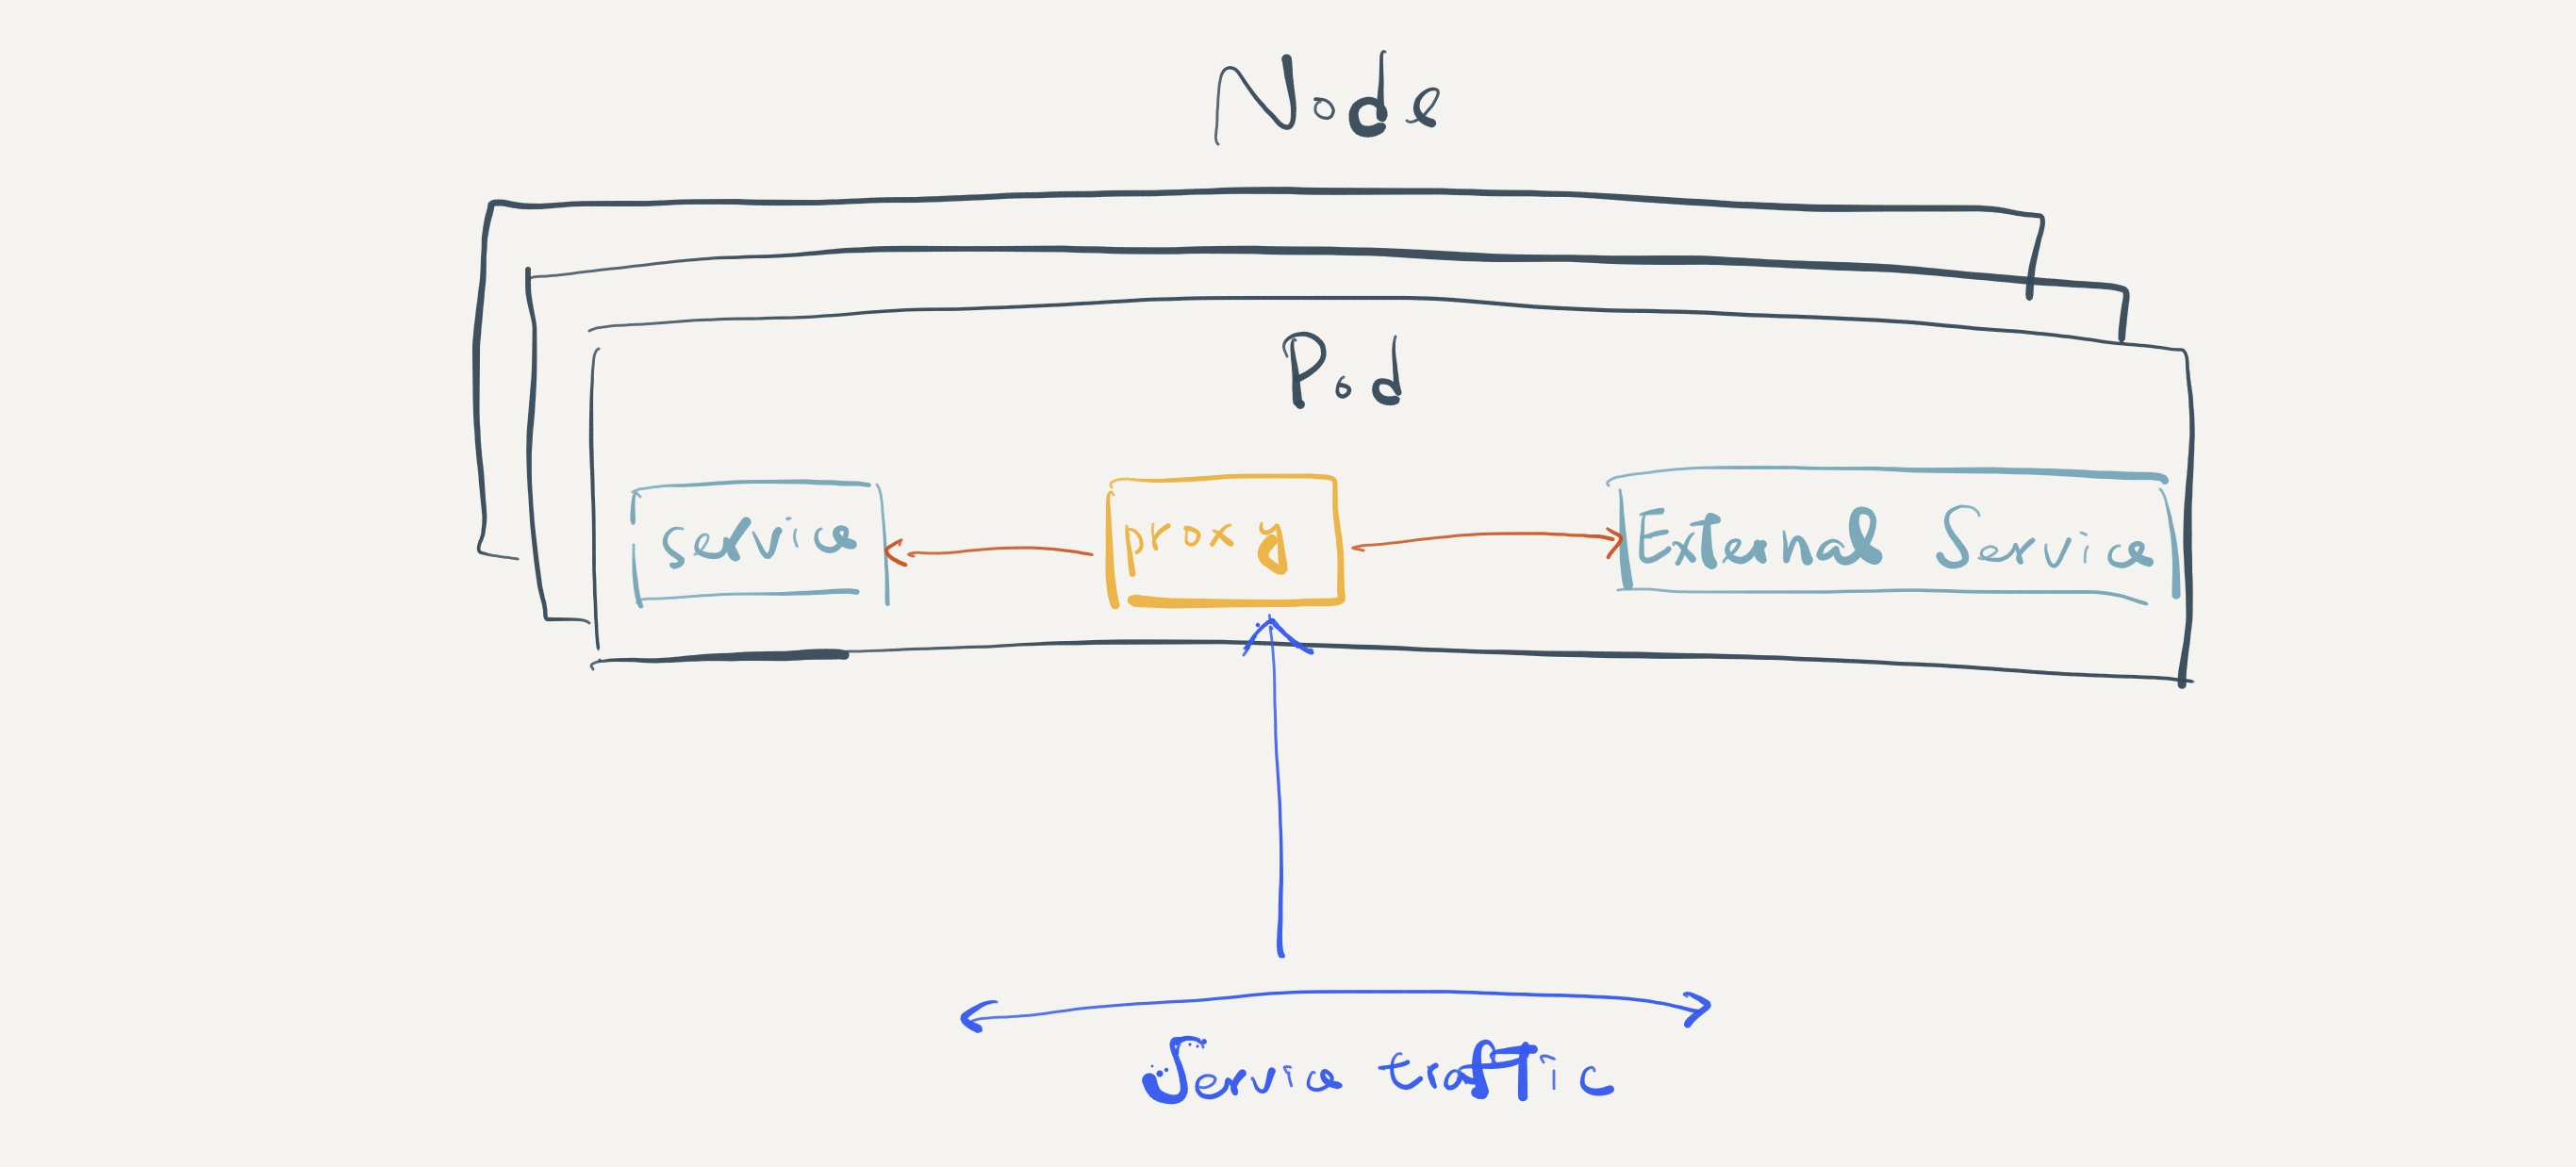 Node
Pod
service
proxy
External Service
Service traffic